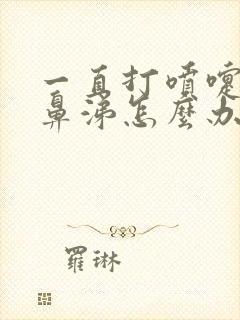 一直打噴嚏
鼻涕怎麼办
羅琳